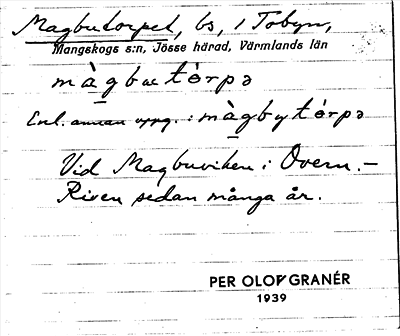 Magbutorpet, bs, i Tobyn,
Mangskogs s:n, Jösse härad, Värmlands län
màgbutórpə
Enl. annan uppg.: màgbytórpə
Vid Magbuviken i Övern. –
Riven sedan många år.
PER OLOF GRANÉR
1939